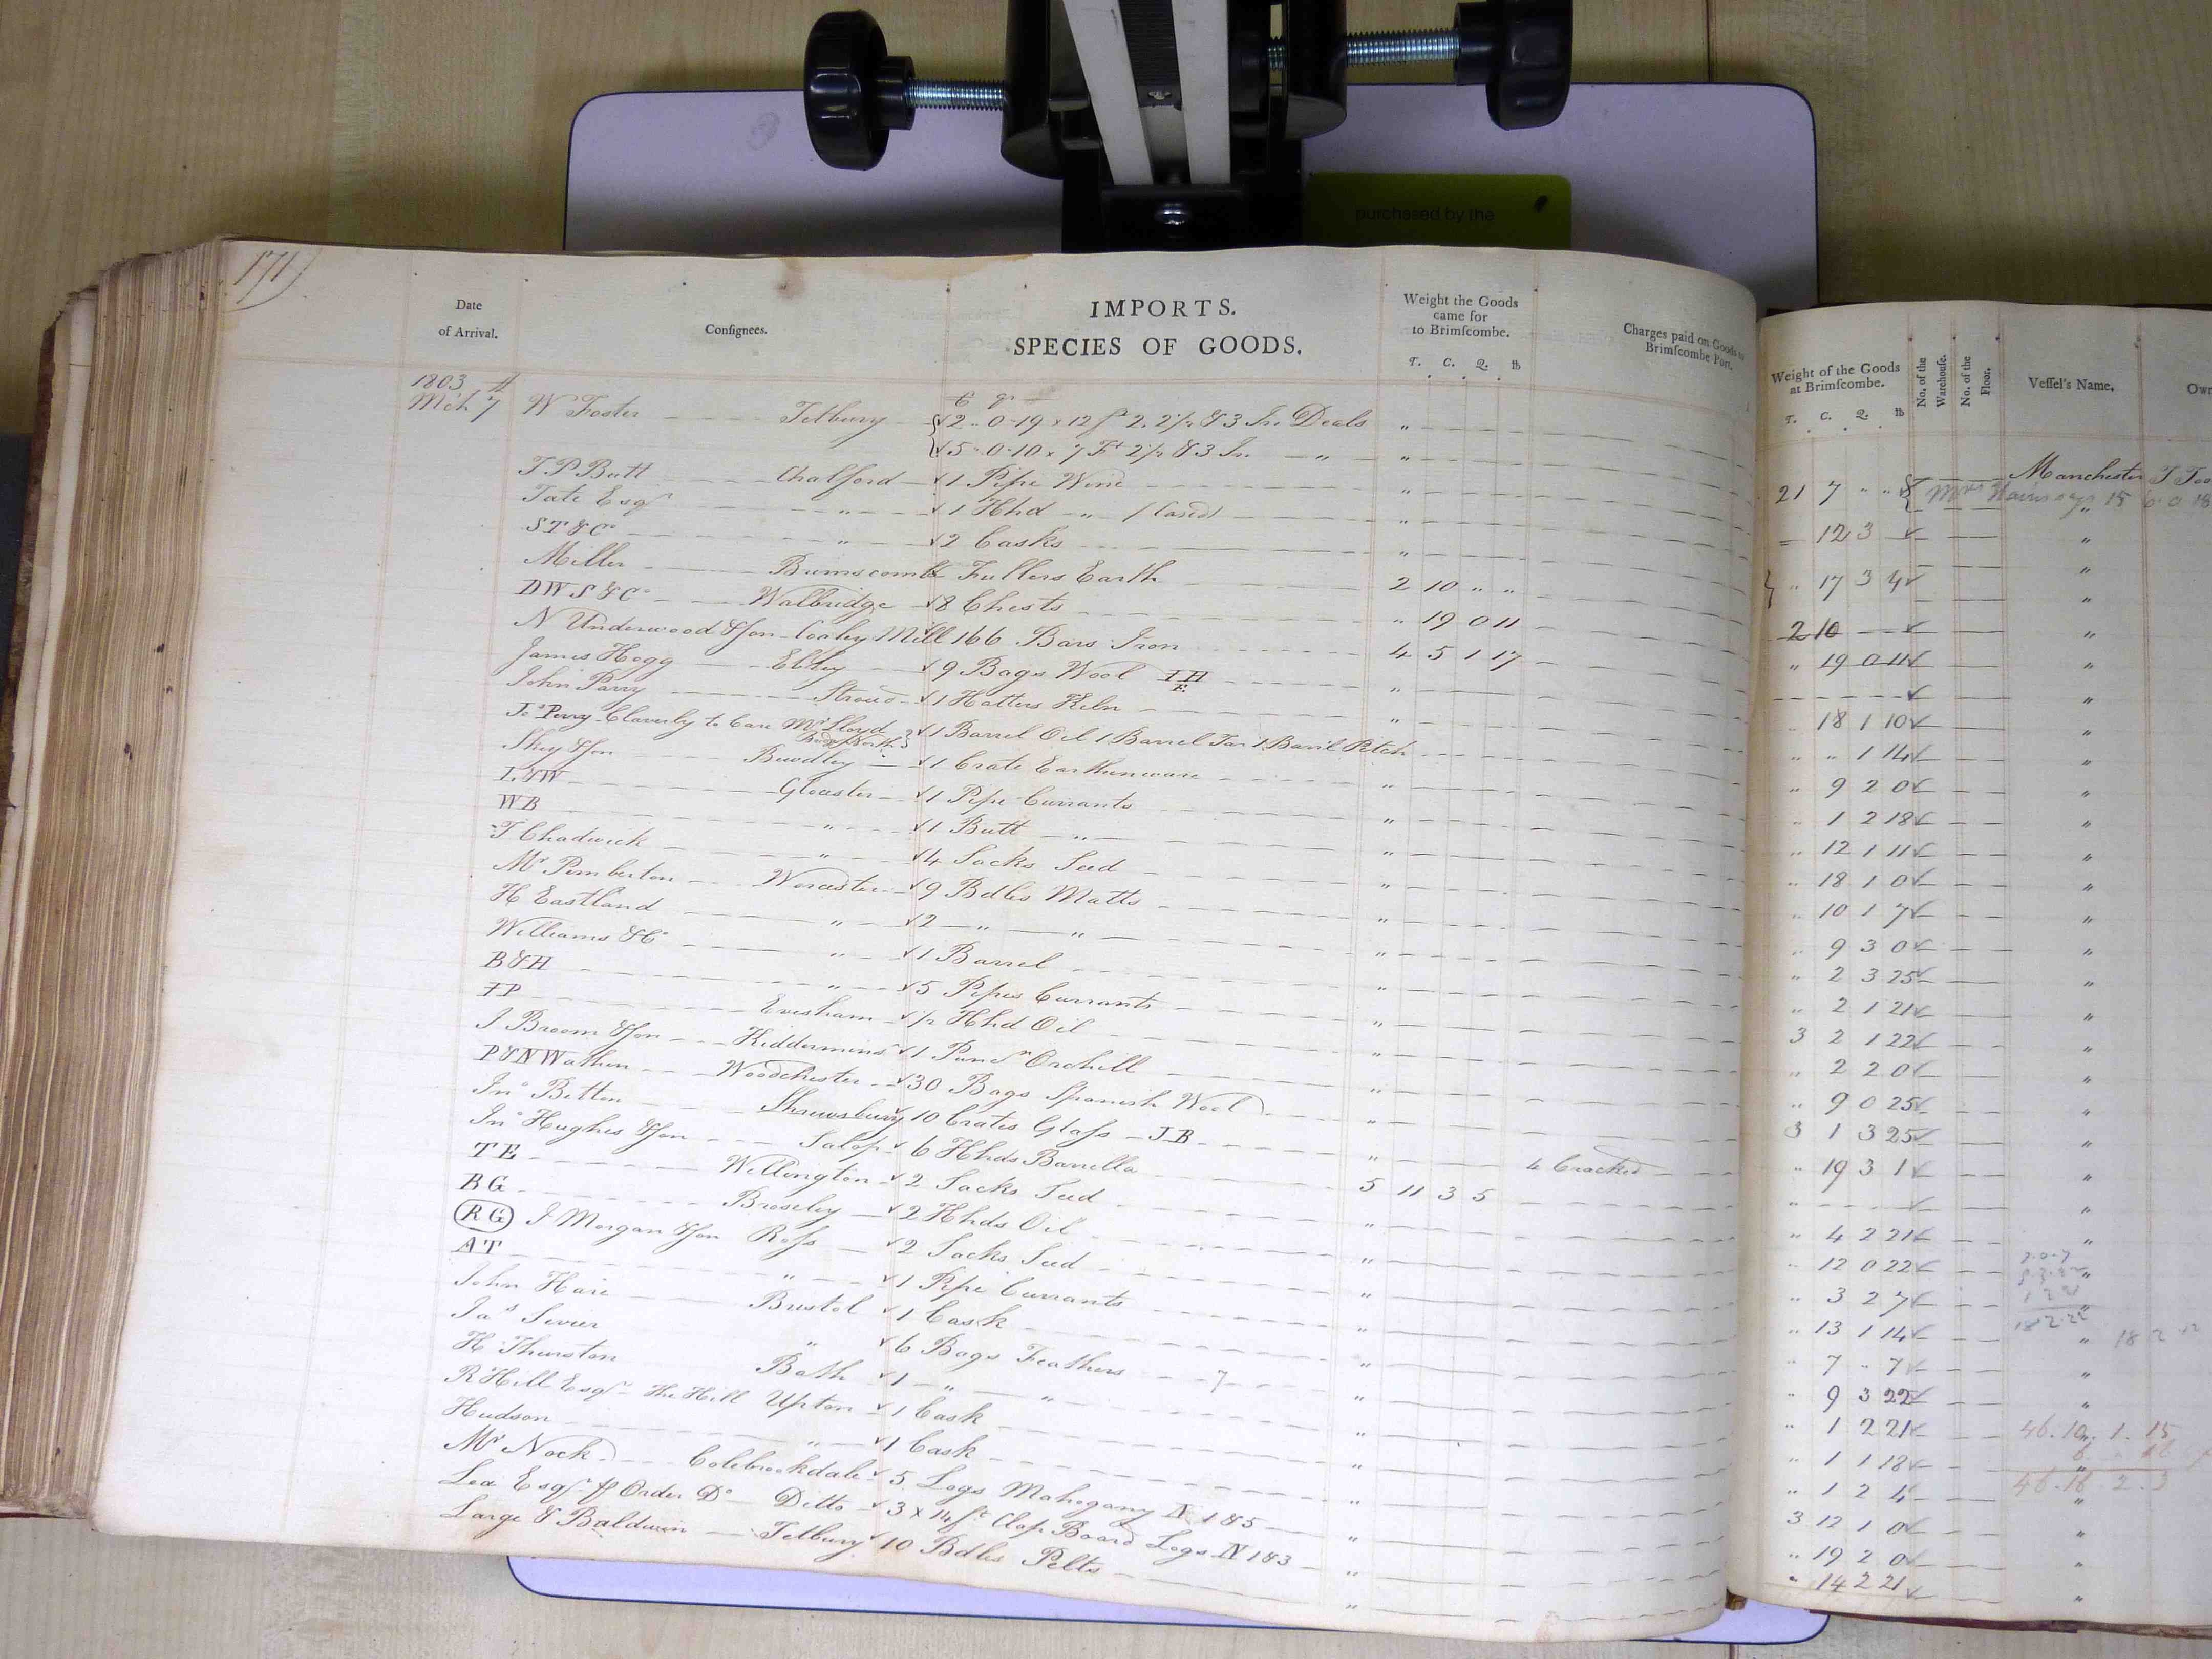 purchased by the
171
Date
of Arrival.
Consignees.
IMPORTS.
SPECIES OF GOODS.
Weight the Goods
came for
to Brimscombe.
T. C. Q. lb
Charges paid on Goods to
Brimscombe Port.
Weight of the Goods
at Brimscombe.
T. C. Q. lb
No. of the
Warehouse.
No. of the
Floor.
Vessel's Name.
Own
1803
Mch 7 W Foster Tetbury 2 - 0 - 19 x 12 ft 2. 2½ & 3 In. Deals "
5 - 0 - 10 x 7 Ft 2½ & 3 In " "
T P Butt Chalford 1 Pipe Wine "
Tate Esqr " 1 Hhd " (Cased) "
ST&Co " 2 Casks "
Miller Brimscombe Fullers Earth 2 10 " "
DWS&Co Walbridge 8 Chests " 19 0 11
N Underwood & Son Coaley Mill 166 Bars Iron 4 5 1 17
James Hogg Ebley 9 Bags Wool IH "
E
John Parry Stroud 1 Hatters Kiln "
Jos Perry Claverly to Care Mr Lloyd 1 Barrel Oil 1 Barrel Tar 1 Barril Pitch
Bridgnorth
Skey & Son Bewdley 1 Crate Earthenware "
L&W Glouster 1 Pipe Currants "
WB " 1 Butt " "
T Chadwick " 4 Sacks Seed "
Mr Pemberton Worcester 9 Bdles Matts "
H Eastland " 2 " " "
Williams & Co " 1 Barrel "
B&H " 5 Pipes Currants "
IP Evesham ½ Hhd Oil "
J Broom & Son Kiddermins 1 Punch Orchill "
P&NWathen Woodchester 30 Bags Spanish Wool "
Jno Bitton Shrewsbury 10 Crates Glass - J B " 4 Cracked
Jno Hughes & Son Salop 6 Hhds Barrilla 5 11 3 5
TE Wellington 2 Sacks Seed "
BG Broseley 2 Hhds Oil "
RG J Morgan & Son Ross 2 Sacks Seed "
AT " 1 Pipe Currants "
John Hare Bristol 1 Cask "
Jas Sevier " 6 Bags Feathers 7 "
H Thurston Bath 1 " " "
R Hill Esqr The Hill Upton 1 Cask "
Hudson " 1 Cask "
Mr Nock Colebrookdale 5 Logs Mahogany N 185 "
Lea Esqr pr Order Do Ditto 3 x 14 ft Clap Board Logs N 183 "
Large & Baldwin Tetbury 10 Bdles Pelts "
Manchester T
21 7 " " 15 "
12 3 "
" 17 3 4 "
2 10 "
" 19 0 11 "
" 18 1 10 "
" " 1 14 "
" 9 2 0 "
" 1 2 18 "
" 12 1 11 "
" 18 1 0 "
" 10 1 7 "
" 9 3 0 "
" 2 3 25 "
" 2 1 21 "
3 2 1 22 "
" 2 2 0 "
" 9 0 25 "
3 1 3 25 "
" 19 3 1 "
"
" 4 2 21 "
" 12 0 22 "
" 3 2 7 "
" 13 1 14 "
" 7 " 7 "
" 9 3 22 "
" 1 2 21 46. 10. 1. 15
" 1 1 18 "
" 1 2 4 46. 16. 2. 3
3 12 1 0 "
" 19 2 0 "
" 14 2 21 "